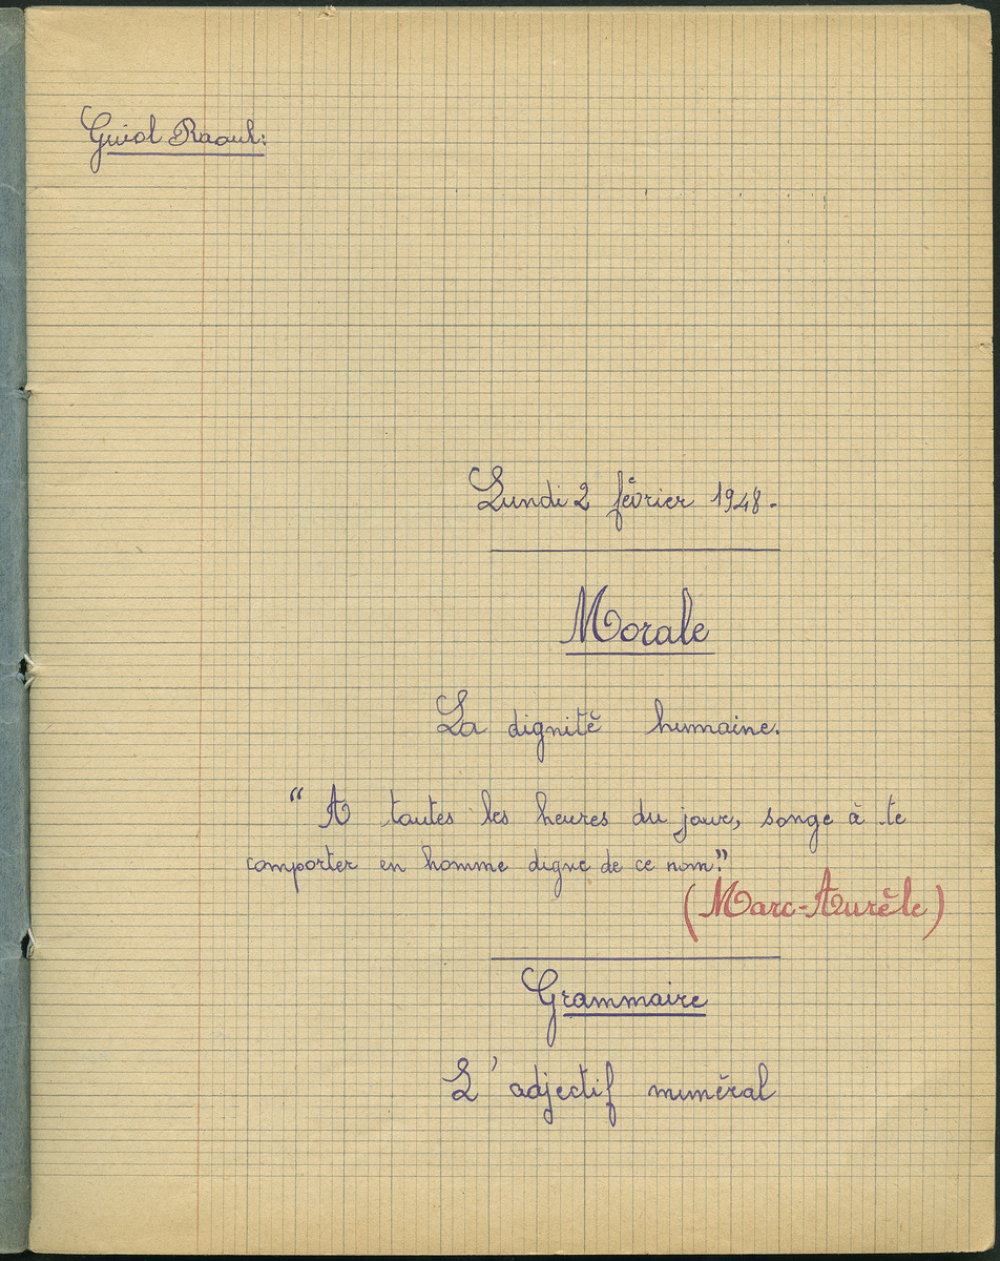 Guiol Raoul:
Lundi 2 février 1948.
Morale
La dignité humaine.
“ A toutes les heures du jour, songe à te
comporter en homme digne de ce nom.”
(Marc-Aurèle)
Grammaire
L'adjectif numéral